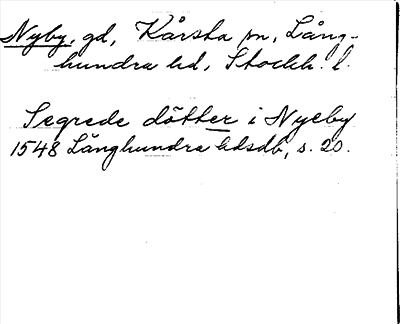 Nyby, gd, Kårsta sn, Lång-
hundra hd, Stockh. l.
Segrede dötter i Nyeby
1548 Långhundra hdsdb, s. 20.